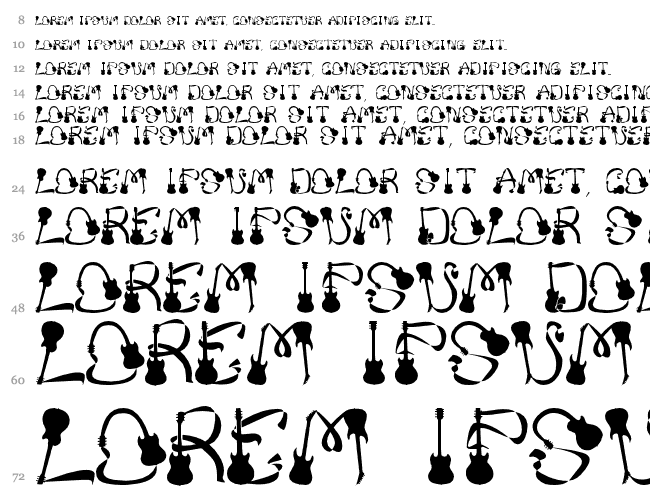 8 LOREM IPSUM DOLOR SIT AMET, CONSECTETUER ADIPISCING ELIT.
10 LOREM IPSUM DOLOR SIT AMET, CONSECTETUER ADIPISCING ELIT.
12 LOREM IPSUM DOLOR SIT AMET, CONSECTETUER ADIPISCING ELIT.
14 LOREM IPSUM DOLOR SIT AMET, CONSECTETUER ADIPISCING
16 LOREM IPSUM DOLOR SIT AMET, CONSECTETUER ADIP
18 LOREM IPSUM DOLOR SIT AMET, CONSECTETUER
24 LOREM IPSUM DOLOR SIT AMET, CO
36 LOREM IPSUM DOLOR S
48 LOREM IPSUM DO
60 LOREM IPSUM
72 LOREM IPS